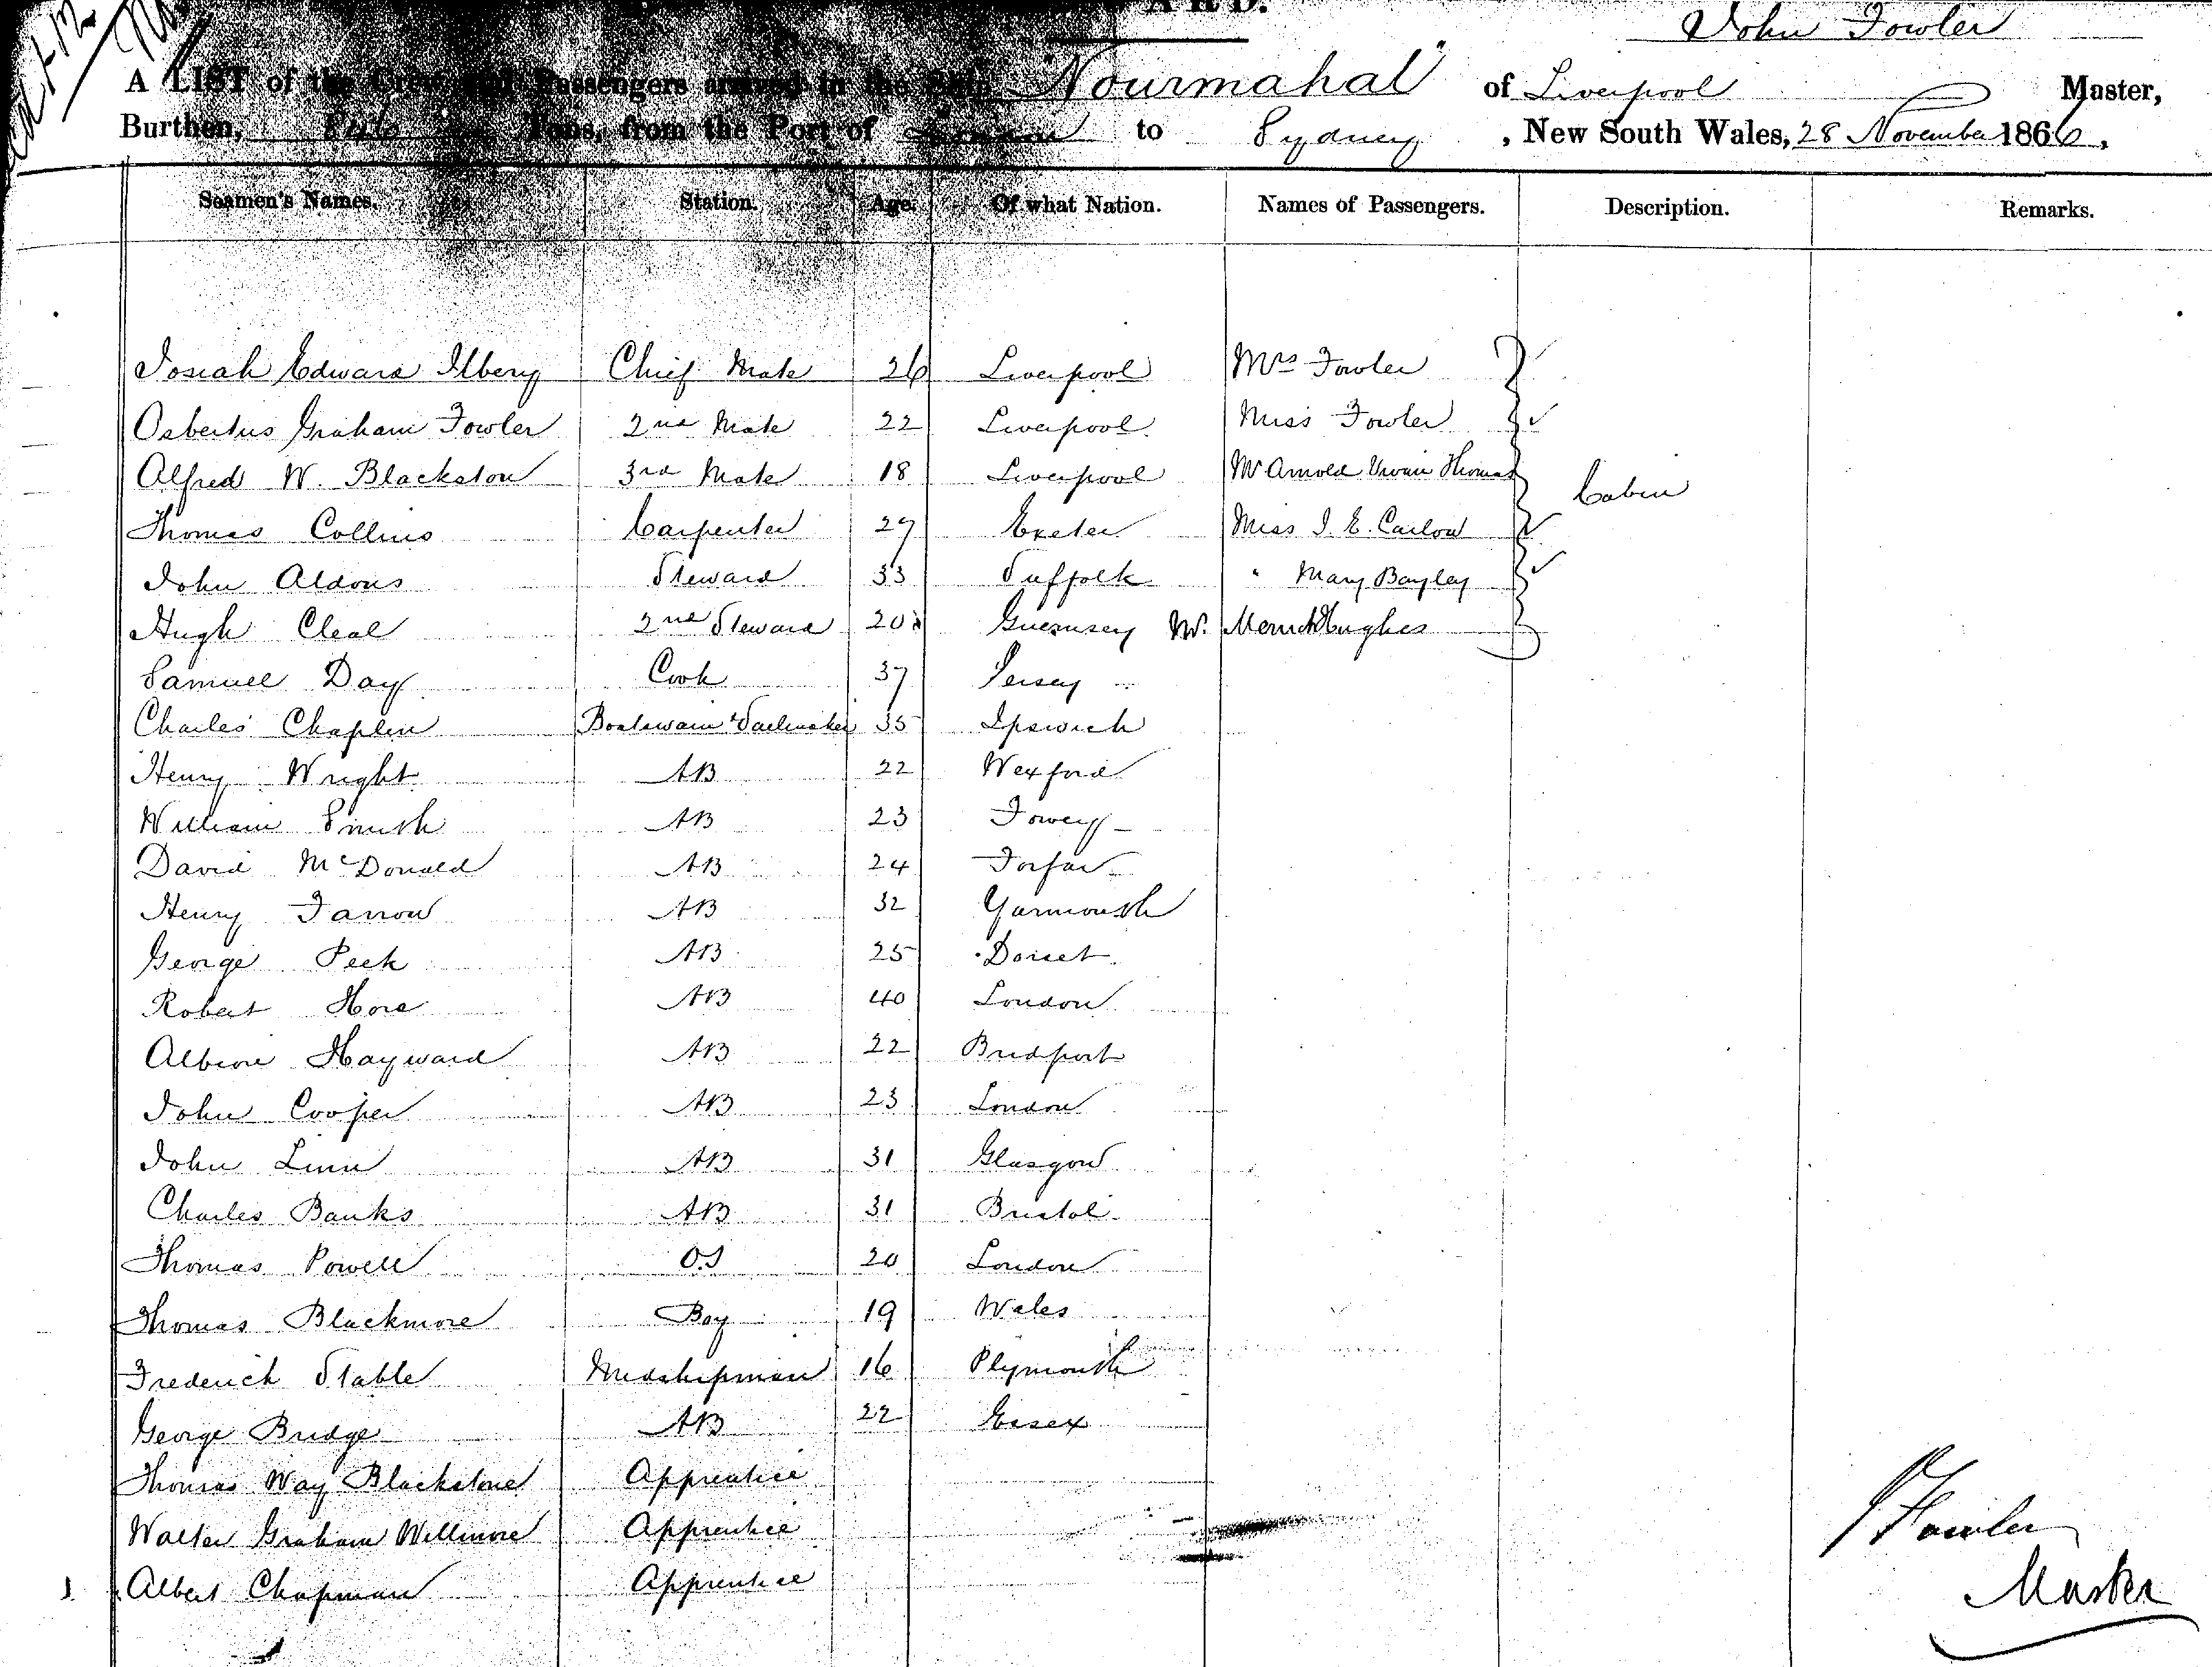 John Fowler
A LIST of the Crew and Passengers arrived in the Ship "Nourmahal" of Liverpool Master,
Burthen, Tons, from the Port of London to Sydney, New South Wales, 28 November 1866,
Seamen's Names. Station. Age. Of what Nation. Names of Passengers. Description. Remarks.
Josiah Edward Ilbery Chief Mate 26 Liverpool Mrs Fowler
Osbertus Graham Fowler 2nd Mate 22 Liverpool Miss Fowler
Alfred W. Blackston 3rd Mate 18 Liverpool Mr Arnold Thomas
Cabin
Thomas Collins Carpenter 29 Exeter Miss J. E. Carlow
John Aldous Steward 33 Suffolk " Mary Bayley
Hugh Cleal 2nd Steward 20 Guernsey Mr. Hughes
Samuel Day Cook 37 Jersey
Charles Chaplin Boatswain & Sailmaker 35 Ipswich
Henry Wright AB 22 Wexford
William Smith AB 23 Fowey
David McDonald AB 24 Forfar
Henry Farrow AB 32 Yarmouth
George Peek AB 25 Dorset
Robert Hore AB 40 London
Albion Hayward AB 22 Bridport
John Cooper AB 23 London
John Linn AB 31 Glasgow
Charles Banks AB 31 Bristol
Thomas Powell O.S 20 London
Thomas Blackmore Boy 19 Wales
Frederick Stable Midshipman 16 Plymouth
George Bridge AB 22 Essex
Thomas Way Blackstone Apprentice
Walter Graham Willmore Apprentice
J Fowler
Albert Chapman Apprentice
Master